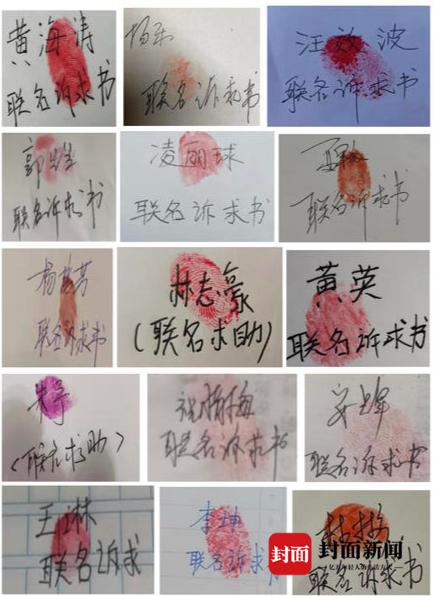 黄海涛
联名诉求书
杨乐
联名诉求书
汪效波
联名诉求书
联名诉求书
凌丽球
联名诉求书
联名诉求书
联名诉求书
林志豪
(联名求助)
黄英
联名诉求书
(联名求助)
祝杨梅
联名诉求书
联名诉求书
王琳
联名诉求
李坤
联名诉求
联名诉求书
封面
封面新闻